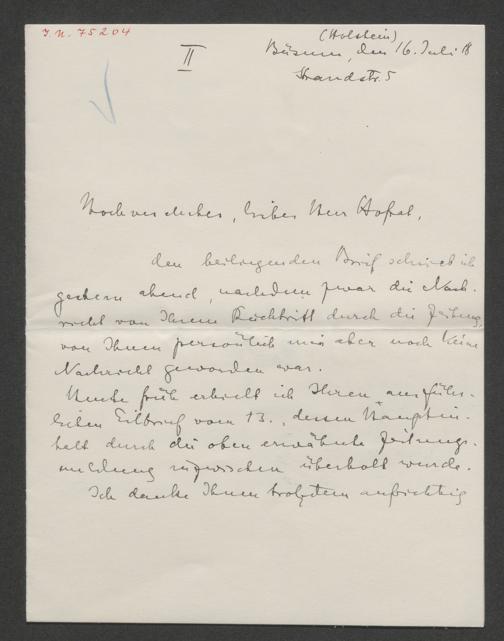 I.N. 75204
II
(Holstein)
Büsum, den 16. Juli 18
Strandstr. 5
Hochverehrter, lieber Herr Hofrat,
den beiliegenden Brief schrieb ich
gestern abend, nachdem zwar die Nach-
richt von Ihrem Rücktritt durch die Zeitung,
von Ihnen persönlich mir aber noch keine
Nachricht geworden war.
Heute früh erhielt ich Ihren ausführ-
lichen Eilbrief vom 13., dessen Hauptin-
halt durch die oben erwähnte Zeitungs-
meldung inzwischen überholt wurde.
Ich danke Ihnen trotzdem aufrichtig